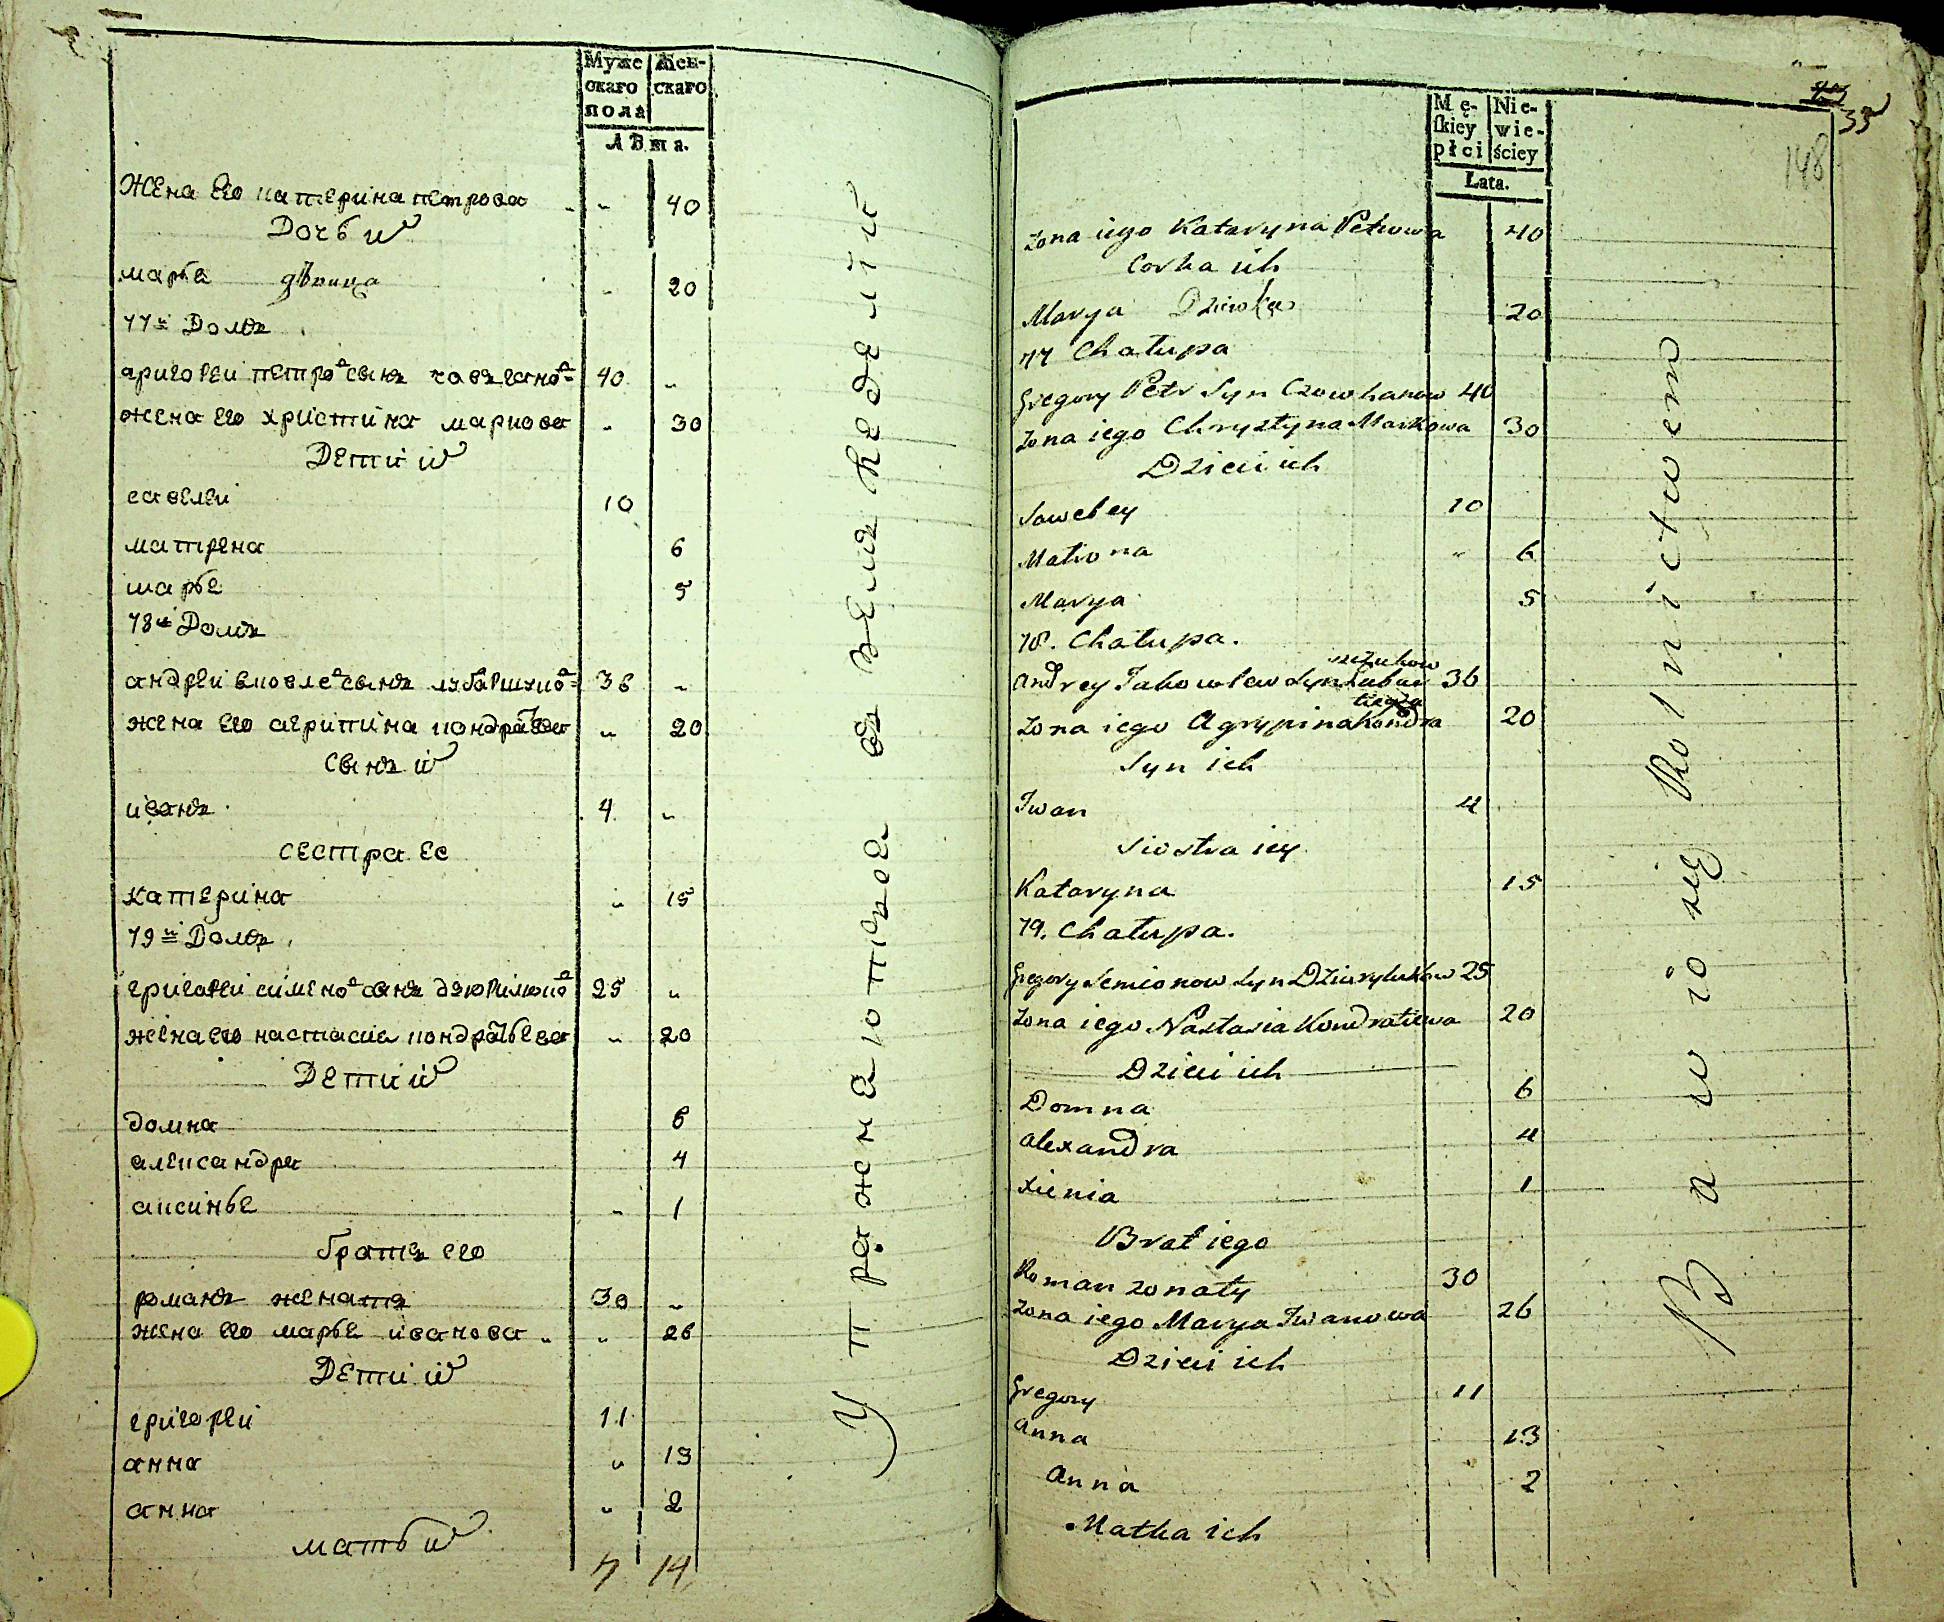 Муже
скаго
пола
Жен-
скаго
Лѣта.
Жена его катерина петрова " 40
Дочь их
марье дѣвица " 20
77й Домъ
григорей петровъ сынъ човъгано 40 "
жена его христина маркова " 30
Дети их
савелей 10
матрена 6
марье 5
78й Домъ
андрей ековле сынъ 36 "
жена его агрипина кондратева " 20
Сынъ их
иванъ 4 "
сестра ее
катерина " 15
79й Домъ
григорей симено сынъ дзюрилюко 25 "
жена его настасие кондратьева " 20
Дети их
домна 6
александра 4
аксинье " 1
братъ его
романъ женатъ 30 "
жена его марье иванова " 26
Дети их
григорей 11
анна " 13
анна " 2
мать их
7 14
Упражнаютцъсе въ земленеделий
Mę-
ſkiey
płci
Nie-
wie-
ściey
Lata.
33
148
Zona iego Kataryna Petrowa 40
Corka ich
Marya Dziewka 20
77 Chatupa
Gregory Petr Syn Czowhanow 40
Zona iego Chrystyna Markowa 30
Dzieci ich
Saweley 10
Matrona " 6
Marya 5
78. Chatupa.
Andrey Jakowlew Syn Lubar 36
Zona iego Agrypina Kondra 20
Syn ich
Iwan 4
Siostra iey
Kataryna 15
79. Chatupa.
Gregory Semionow Syn Dziurylukow 25
Zona iego Nastasia Kondratiewa 20
Dzieci ich
Domna 6
Alexandra 4
Xienia 1
Brat iego
Roman zonaty 30
Zona iego Marya Iwanowa 26
Dzieci ich
Gregory 11
Anna 13
Anna 2
Matka ich
Bawio się Rolnictwem